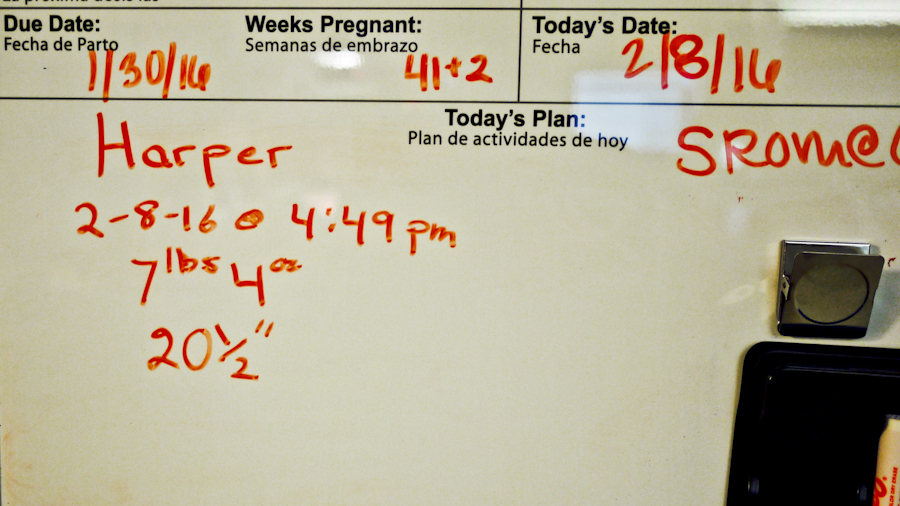 Due Date:
Fecha de Parto
1/30/16
Weeks Pregnant:
Semanas de embrazo
41+2
Today's Date:
Fecha
2/8/16
Today's Plan:
Plan de actividades de hoy
SROM@
Harper
2-8-16 @ 4:49 pm
7 lbs 4 oz
20 1/2"